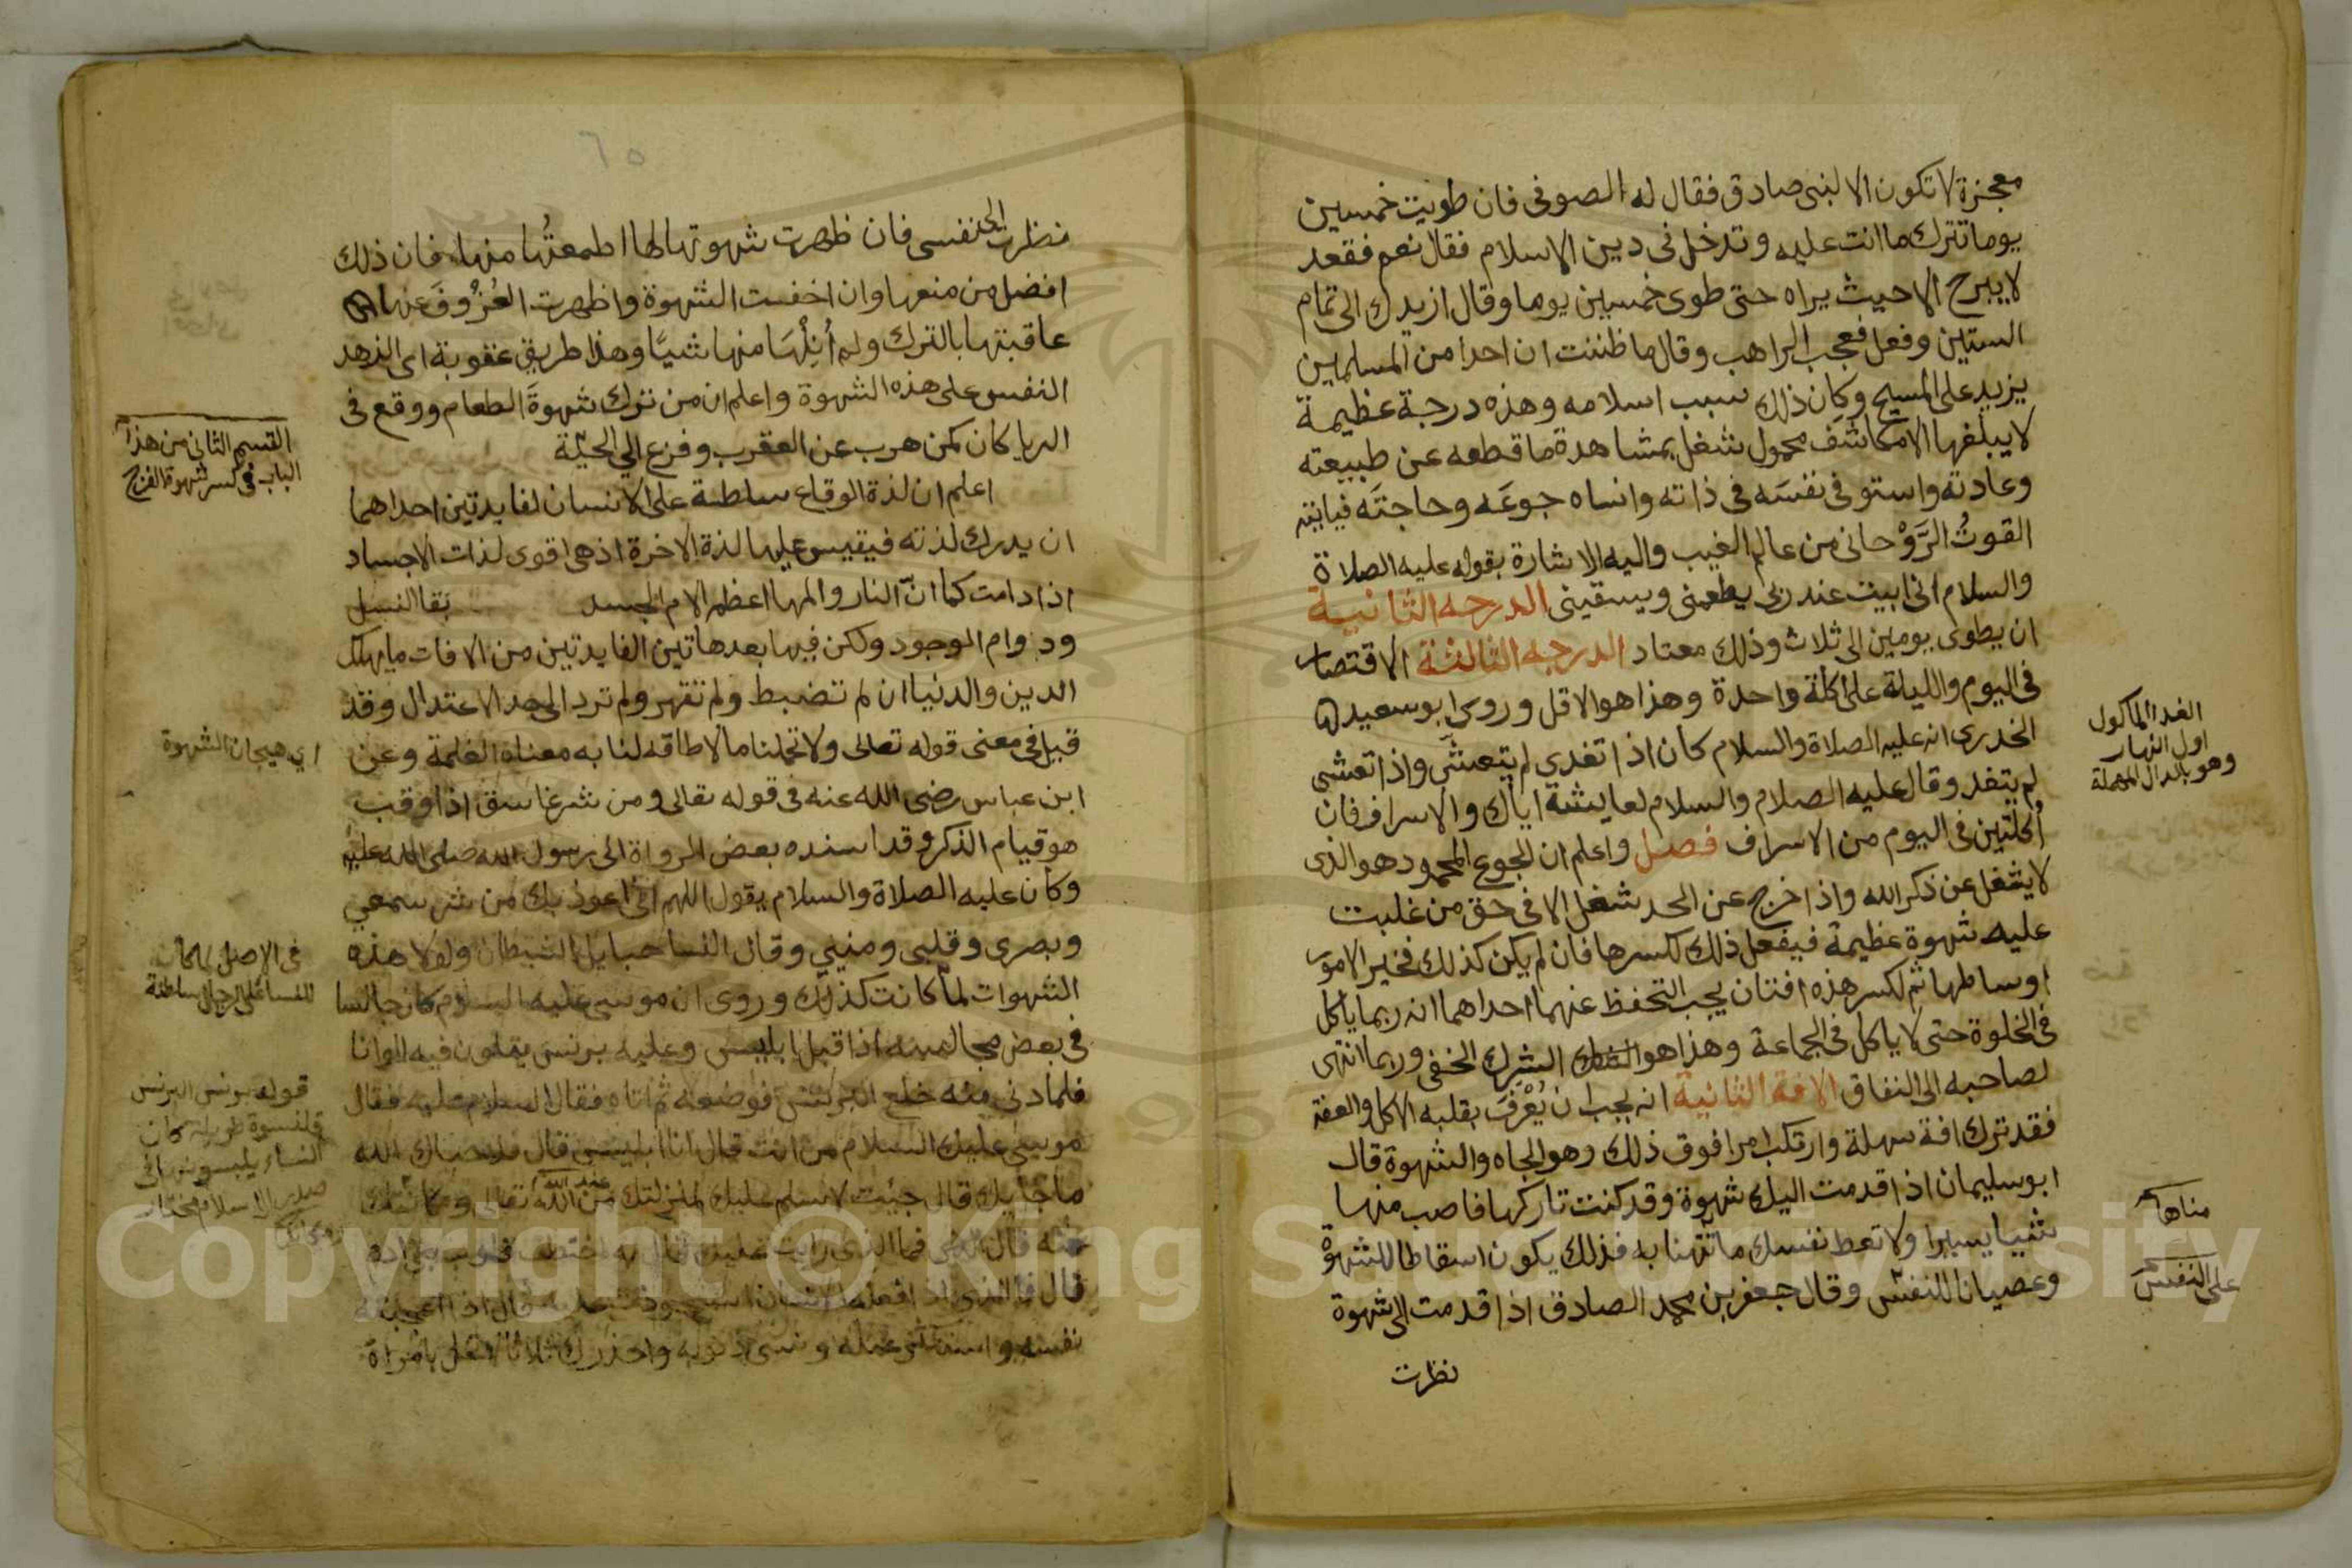 معجزة لا تكون الا لنبي صادق فقال له الصوفى فان طويت خمسين
يوما تترك ما انت عليه وتدخل فى دين الاسلام فقال نعم فقعد
لا يبرح الا حيث يراه حتى طوى خمسين يوما وقال ازيدك الى تمام
الستين وفعل فعجب الراهب وقال ما ظننت ان احدا من المسلمين
يزيد على المسيح وكان ذلك سبب اسلامه وهذه درجة عظيمة
لا يبلغها الا مكاشف محمول شغل بمشاهدة ما قطعه عن طبيعته
وعادته واستوفى نفسَه فى ذاته وانساه جوعَه وحاجتَه
القوتُ الرَّوْحانى من عالم الغيب واليه الاشارة بقوله عليه الصلاة
والسلام انى ابيت عند ربى يطعمنى ويسقينى الدرجه الثانية
ان يطوى يومين الى ثلاث وذلك معتاد الدرجه الثالثة الاقتصار
فى اليوم والليلة على اكلة واحدة وهذا هو الاقل وروى ابو سعيد
الخدرى انه عليه الصلاة والسلام كان اذا تغدى لم يتعشَّى واذا تعشى
لم يتغد وقال عليه الصلام والسلام لعايشة اياك والاسراف فان
أكلتين فى اليوم من الاسراف فصل واعلم ان الجوع المحمود هو الذى
لا يشغل عن ذكر الله واذا خرج عن الحد شغل الا فى حق من غلبت
عليه شهوة عظيمة فيفعل ذلك لكسرها فان لم يكن كذلك فخير الامور
اوساطها ثم لكسر هذه افتان يجب التحفظ عنهما احداهما انه ربما ياكل
فى الخلوة حتى لا ياكل فى الجماعة وهذا هو الشرك الخفى وربما انتهى
لصاحبه الى النفاق الافة الثانية انه يجب ان يُعْرَفَ بقلبه الاكل والعفة
فقد ترك افة سهلة وارتكب امرا فوق ذلك وهو الجاه والشهوة قال
ابو سليمان اذا قدمت اليك شهوة وقد كنت تاركها فاصب منها
شيا يسيرا ولا تعط نفسك ما تتهنا به فذلك يكون اسقاطا للشهوة
وعصيانا للنفس وقال جعفر بن محمد الصادق اذا قدمت الى شهوة
نظرت
الغدا الماكول
اول النهار
وهو بالدال المهملة
مناها
على النفس
٦٥
نظرت الى نفسى فان ظهرت شهوتها لها اطمعتُها منها فان ذلك
افضل من منعها وان اخفت الشهوة واظهرت العُزُوفَ عنها
عاقبتها بالترك ولم أُنِلْهَا منها شيًا وهذا طريق عقوبة اى الزهد
النفس على هذه الشهوة واعلم ان من ترك شهوةَ الطعام ووقع فى
الريا كان كمن هرب عن العقرب وفزع الى الحيّة
اعلم ان لذة الوقاع سلطة على الانسان لفايدتين احداهما
ان يدرك لذته فيقيس عليها لذة الاخرة اذ هى اقوى لذات الاجساد
اذا دامت كما انّ النار والمها اعظم الام الجسد بقا النسل
ودوام الوجود ولكن فيها بعد هاتين الفايدتين من الافات ما يهلك
الدين والدنيا ان لم تضبط ولم تقهر ولم ترد الى حد الاعتدال وقد
قيل فى معنى قوله تعالى ولا تحملنا ما لا طاقه لنا به معناه الغلمة وعن
ابن عباس رضى الله عنه فى قوله تعالى ومن شر غاسق اذا وقب
هو قيام الذكر وقد اسنده بعض الرواة الى رسول الله صلى الله عليه
وكان عليه الصلاة والسلام يقول اللهم انى اعوذ بك من شر سمعي
وبصرى وقلبى ومنيى وقال النسا حبايل الشيطان ولولا هذه
الشهوات لما كانت كذلك وروى ان موسى عليه السلام كان جالسا
فى بعض مجالسه اذ اقبل ابليس وعليه برنس يتلون فيه الوانا
فلما دنى منه خلع البرنس فوضعه ثم اتاه فقال السلام عليه فقال
موسى عليك السلام من انت قال انا ابليس قال فلا حياك الله
ما جا بك قال جيت لاسلم عليك لمنزلتك من الله تعالى ومكانتك
منه قال فما الذى رايت عليك قال به اختطف قلوب بنى ادم
قال فما الذى اذا فعله الانسان استحوذت عليه قال اذا اعجبته
نفسه واستكثر عمله ونسى ذنوبه واحذرك ثلاثا لا تخل بامراة
عند الله
القسم الثانى من هذا
الباب فى كسر شهوة الفرج
اى هيجان الشهوة
فى الاصل لما كان
للنسا على الرجال سلطة
قوله برنس البرنس
قلنسوة طويلة كان
النساء يلبسونها فى
صدر الاسلام
Copyright © King Saud University